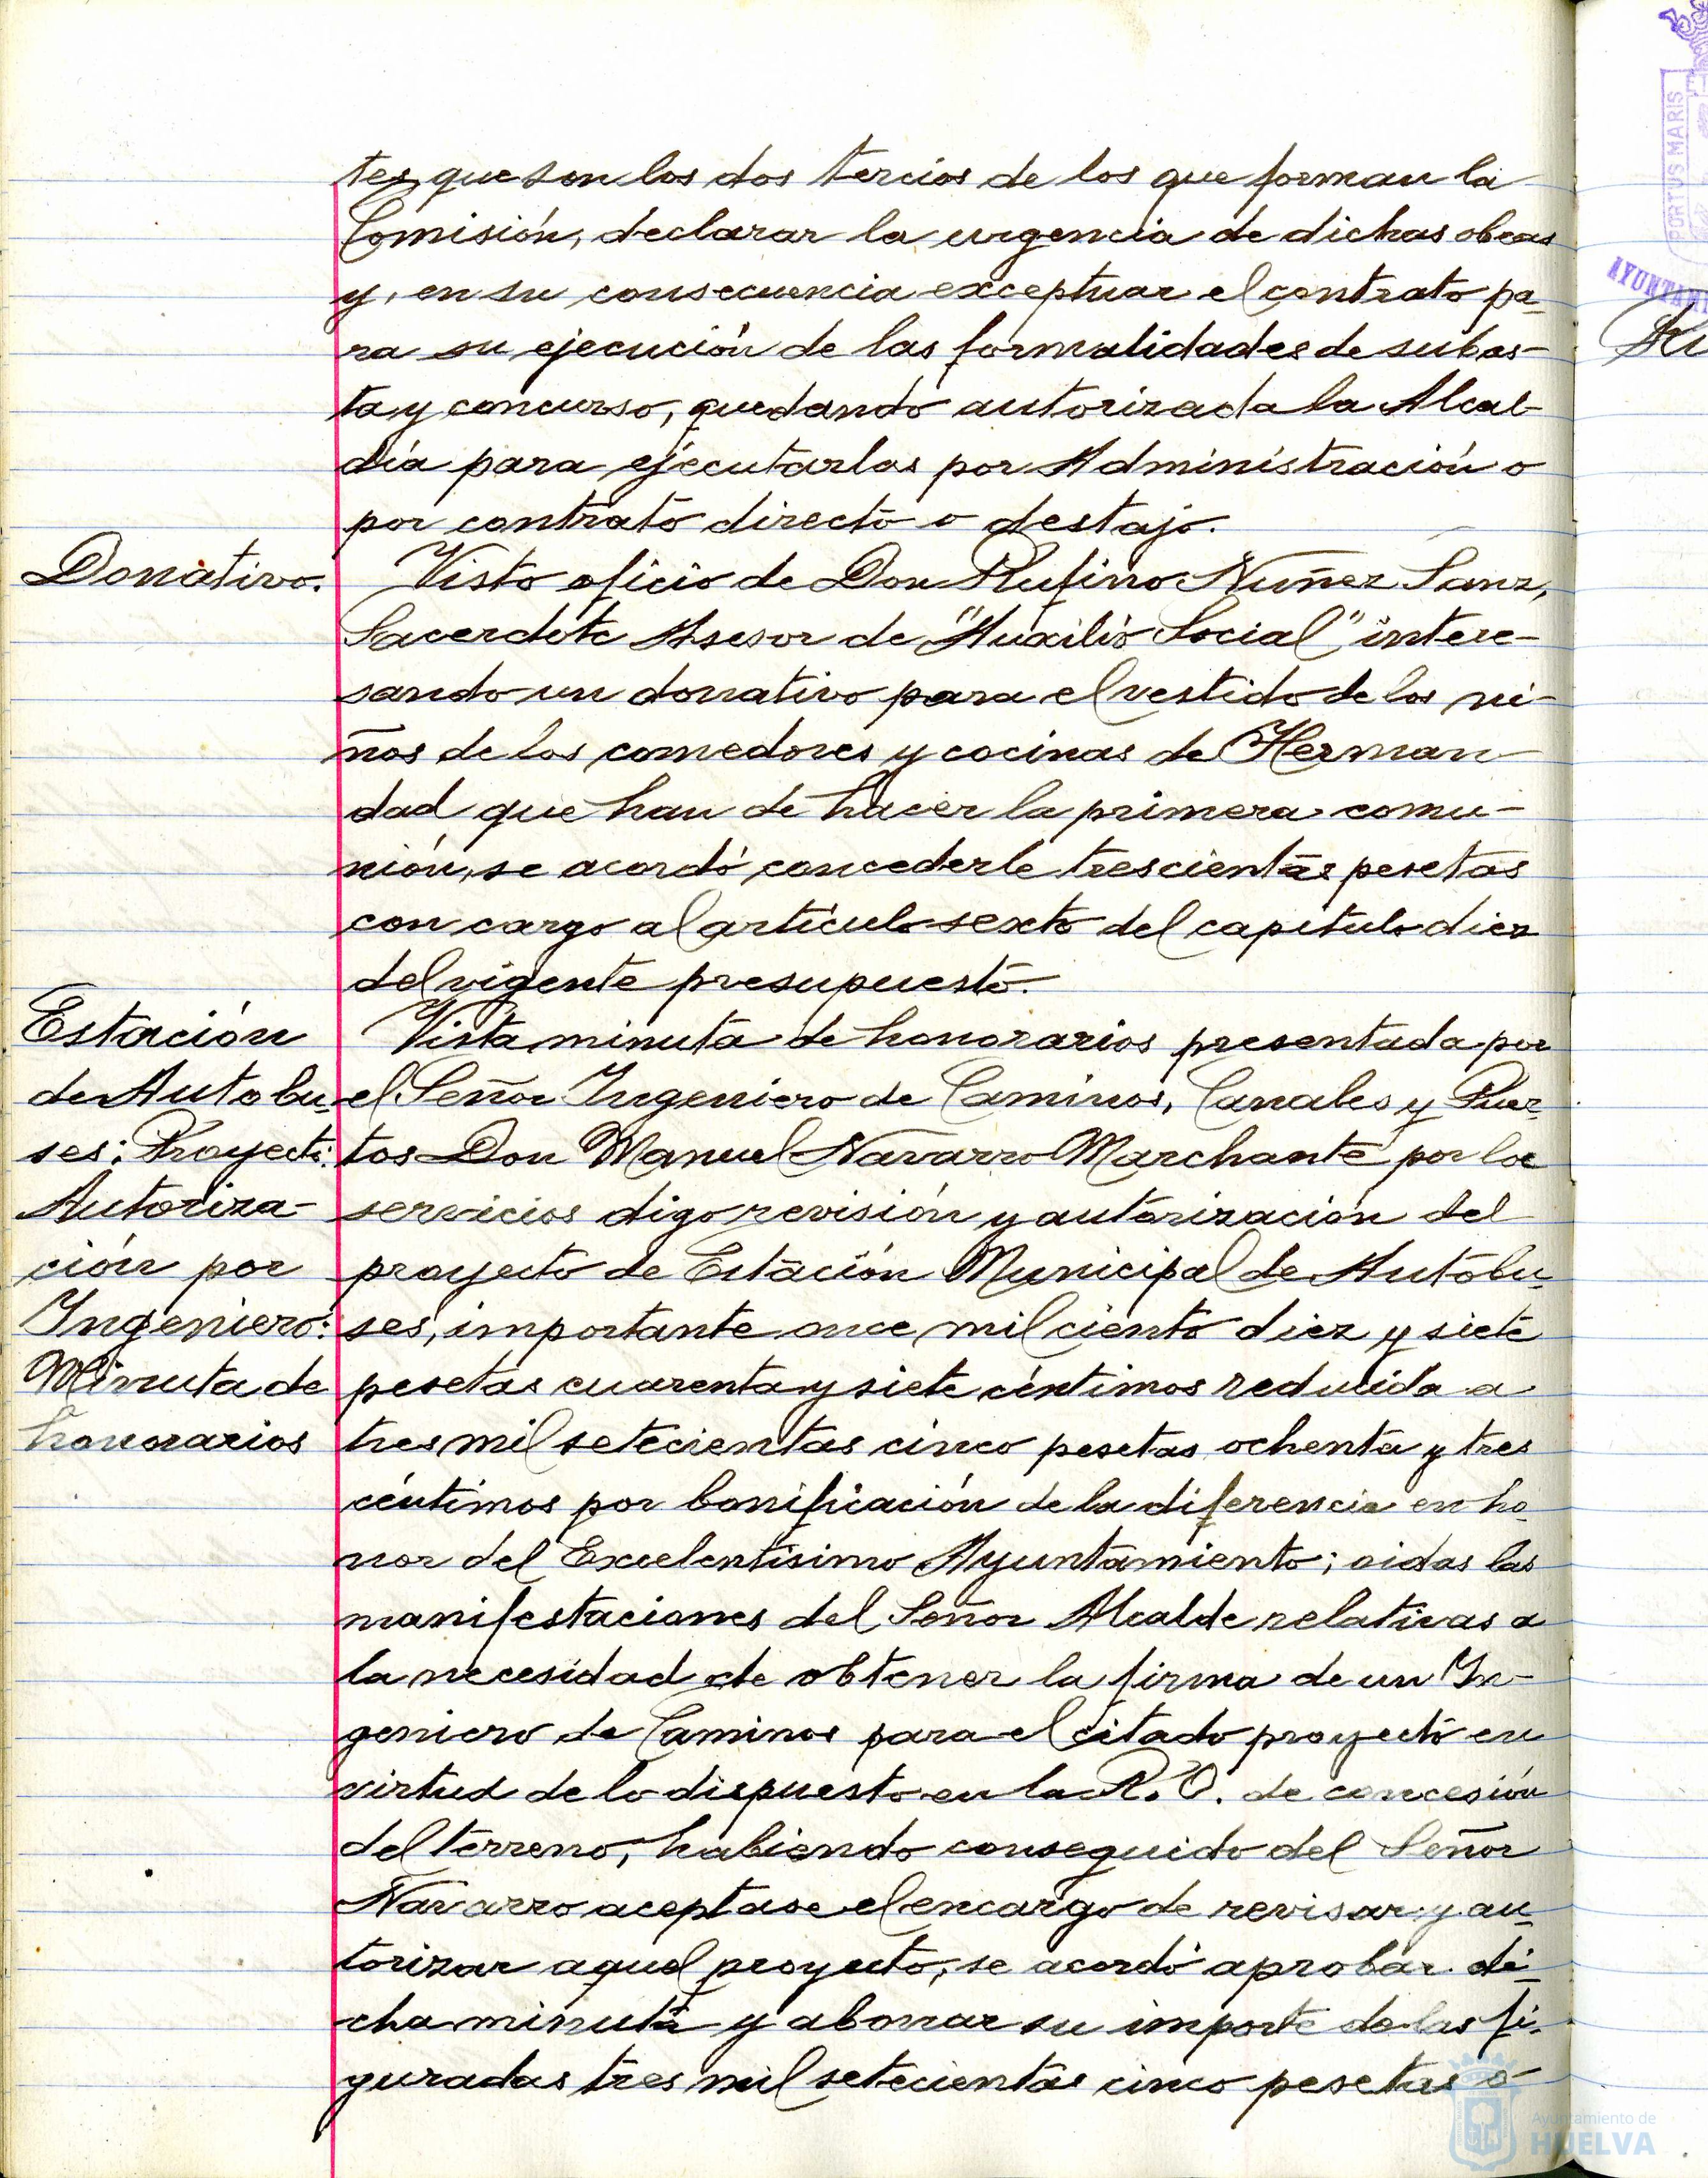 tes que son los dos tercios de los que forman la
Comisión, declarar la urgencia de dichas obras
y, en su consecuencia exceptuar el contrato pa-
ra su ejecución de las formalidades de subas-
ta y concurso, quedando autorizada la Alcal-
día para ejecutarlas por Administración o
por contrato directo o destajo.
Donativo.
Visto oficio de Don Rufino Nuñez Sanz,
Sacerdote Asesor de "Auxilio Social" intere-
sando un donativo para el vestido de los ni-
ños de los comedores y cocinas de Herman-
dad que han de hacer la primera comu-
nión, se acordó concederle trescientas pesetas
con cargo al artículo sexto del capítulo diez
del vigente presupuesto.
Estación
de Autobu-
ses: Proyecto:
Autoriza-
ción por
Ingeniero:
Minuta de
honorarios
Vista minuta de honorarios presentada por
el Señor Ingeniero de Caminos, Canales y Puer-
tos Don Manuel Navarro Marchante por los
servicios digo revisión y autorización del
proyecto de Estación Municipal de Autobu-
ses, importante once mil ciento diez y siete
pesetas cuarenta y siete céntimos reducida a
tres mil setecientas cinco pesetas ochenta y tres
céntimos por bonificación de la diferencia en ho-
nor del Excelentísimo Ayuntamiento; oidas las
manifestaciones del Señor Alcalde relativas a
la necesidad de obtener la firma de un In-
geniero de Caminos para el citado proyecto en
virtud de lo dispuesto en la R. O. de concesión
del terreno, habiendo conseguido del Señor
Navarro aceptase el encargo de revisar y au-
torizar aquel proyecto, se acordó aprobar di-
cha minuta y abonar su importe de las fi-
guradas tres mil setecientas cinco pesetas o
PORTUS MARIS
Ayuntamiento de
HUELVA